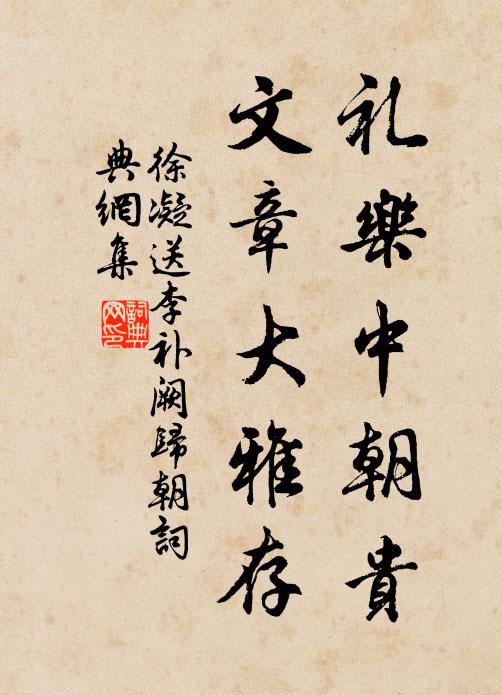 礼樂中朝貴
文章大雅存
徐凝送李补阙歸朝詞
典網集
詞典
网印